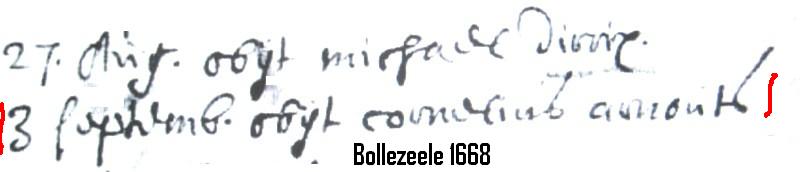 27. Aug. obyt michael Dircix.
3 septemb. obyt cornelius arnouts
Bollezeele 1668